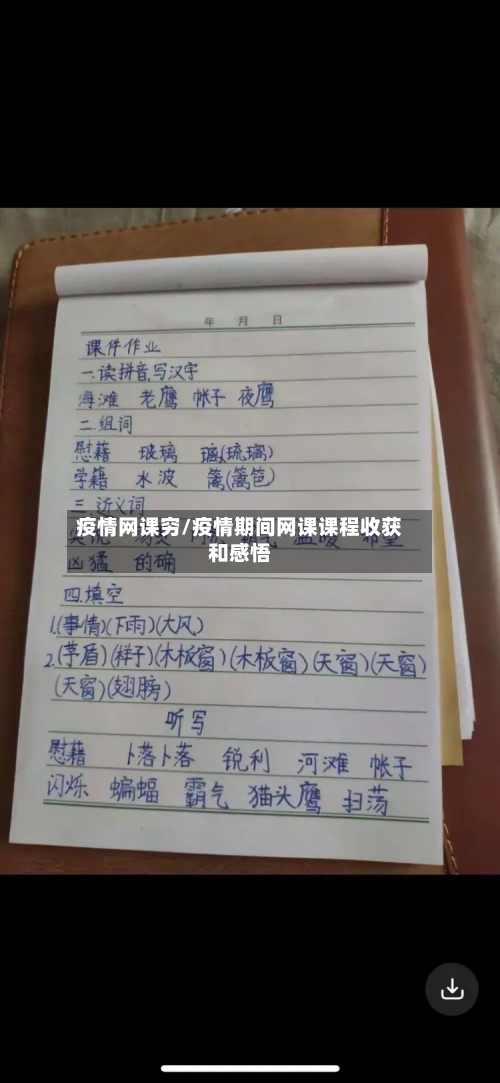 年 月 日
课件作业
一.读拼音,写汉字
海滩 老鹰 帐子 夜鹰
二.组词
慰藉 玻璃 璃(琉璃)
学籍 水波 篱(篱笆)
三.近义词
疫情网课穷/疫情期间网课课程收获
和感悟
凶猛 的确
四.填空
1.(事情)(下雨)(大风)
2.(茅盾)(样子)(木板窗)(木板窗)(天窗)(天窗)
(天窗)(翅膀)
听写
慰藉 卜落卜落 锐利 河滩 帐子
闪烁 蝙蝠 霸气 猫头鹰 扫荡